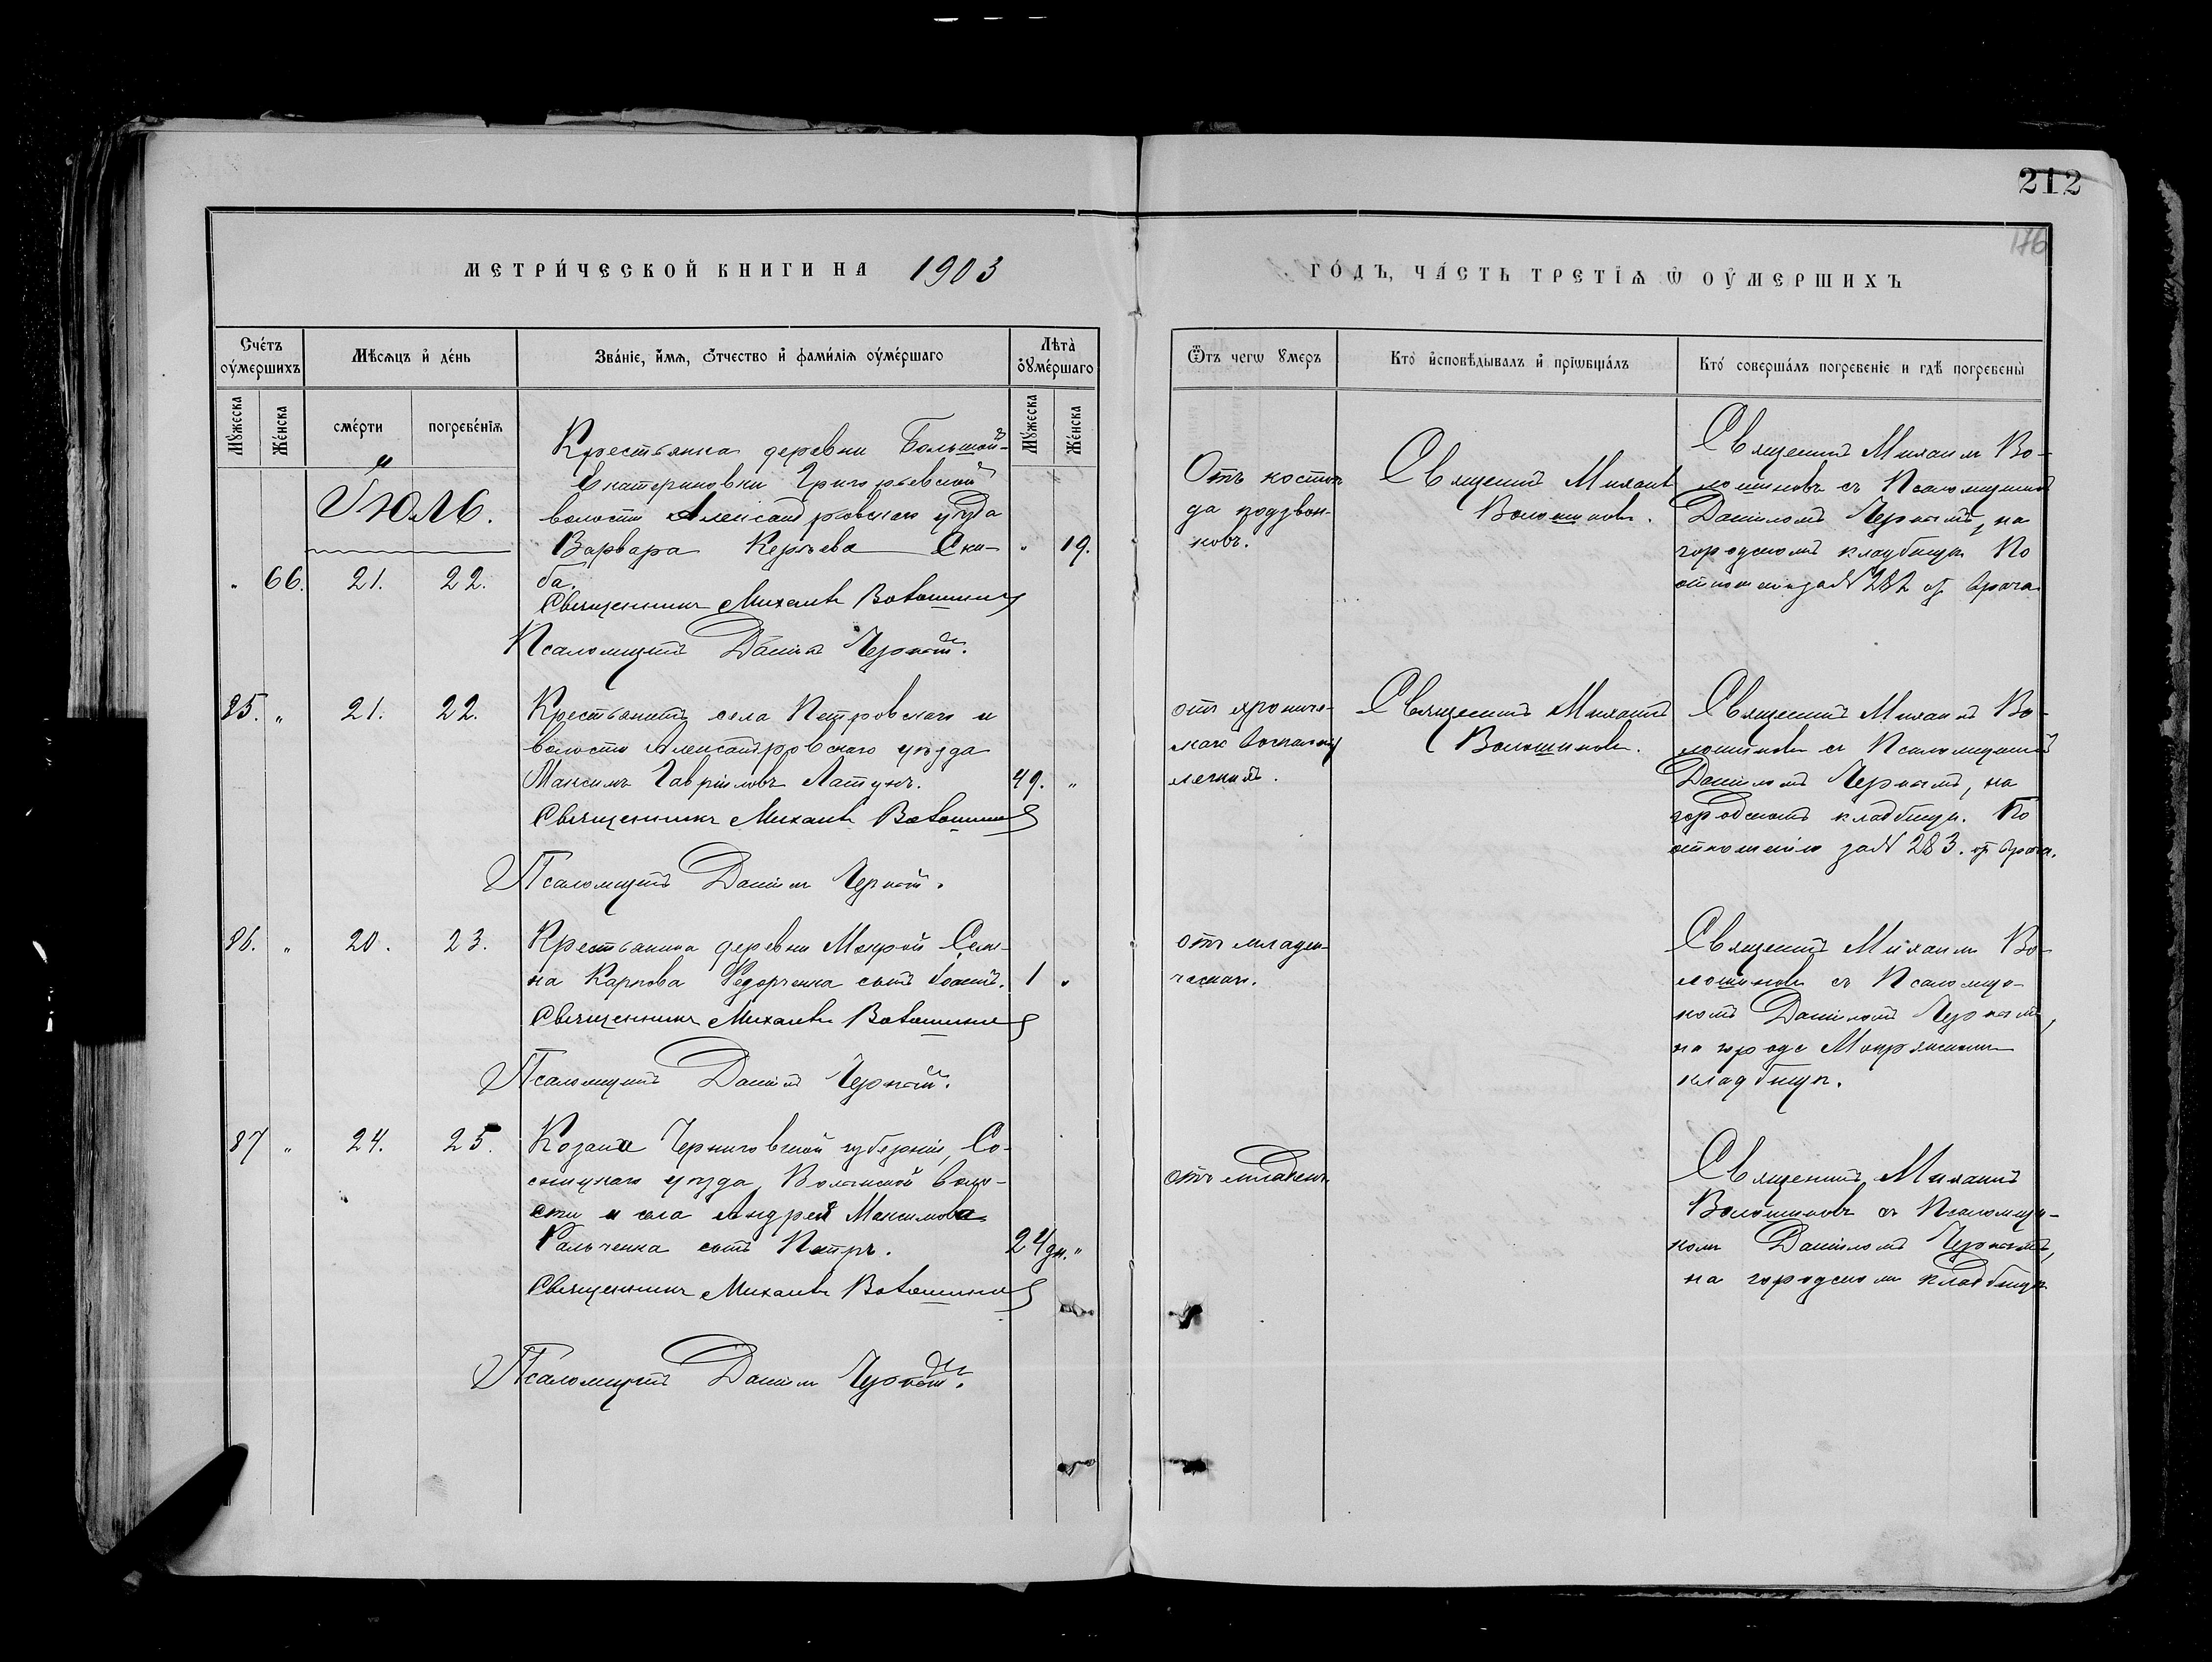 212
176
МЕТРИ́ЧЕСКОЙ КНИГИ НА 1903
ГО́ДЪ, ЧА́СТЬ ТРЕТІѦ Ѡ ОУ҆МЕРШИХЪ
Сче́тъ оу҆ме́ршихъ
Мѣсѧцъ и҆ де́нь
Зва́ніе, и҆́мѧ, ѻ҆́тчество и҆ фами́лїѧ оу҆ме́ршаго
Лѣта̀ оу҆ме́ршаго
Ѿ чегѡ ᲂумеръ
Кто̀ и҆сповѣ́дывалъ и҆ прїѡбща́лъ
Кто́ соверша́лъ погребе́ніе и гдѣ̀ погребены̀
Мꙋ́жеска
Же́нска
сме́рти
погребе́нїѧ
Мꙋ́жеска
Же́нска
Іюль.
" 66. 21. 22.
Крестьянка деревни Большой-
Екатериновки Григорьевской
волости Александровскаго уѣзда
Варвара Ски-
ба.
" 19.
Священникъ Михаилъ Волошинов
Псаломщикъ Даніилъ Черный.
Отъ
Священникъ Михаилъ
Волошиновъ.
Священникъ Михаилъ Во-
лошиновъ съ Псаломщикомъ
Даніиломъ Чернымъ, на
городскомъ кладбищѣ По
отношенію за № 282 отъ врача
85. " 21. 22.
Крестьянинъ села Петровскаго и
волости Александровскаго уѣзда
Максимъ Гавріиловъ Латунъ.
49. "
Священникъ Михаилъ Волошинов
Псаломщикъ Даніилъ Черный.
отъ хрониче-
скаго воспаленія
легкихъ.
Священникъ Михаилъ
Волошиновъ.
Священникъ Михаилъ Во-
лошиновъ съ Псаломщикомъ
Даніиломъ Чернымъ, на
городскомъ кладбищѣ. По
отношенію за № 283. отъ врача.
86. " 20. 23.
Крестьянина деревни Мокрой Семе-
на Карпова Федорченка сынъ Іоаннъ.
1 "
Священникъ Михаилъ Волошинов
Псаломщикъ Даніилъ Черный.
отъ младен-
ческой.
Священникъ Михаилъ Во-
лошиновъ съ Псаломщи-
комъ Даніиломъ Чернымъ,
на
кладбищѣ.
87 " 24. 25.
Козака Черниговской губерніи, Со-
сницкаго уѣзда, Волынской воло-
сти и села Андрея Максимова
сынъ Петръ.
24 дн. "
Священникъ Михаилъ Волошинов
Псаломщикъ Даніилъ Черный.
отъ младенч.
Священникъ Михаилъ
Волошиновъ съ Псаломщи-
комъ Даніиломъ Чернымъ,
на городскомъ кладбищѣ